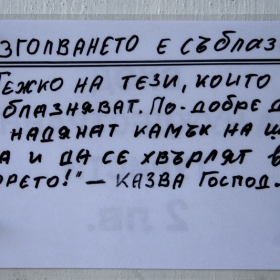 ЗГОЛВАНЕТО Е СЪБЛАЗ
ТЕЖКО НА ТЕЗИ, КОИТО
БЛАЗНЯВАТ. ПО-ДОБРЕ Д
НАДЯНАТ КАМЪК НА Ш
А И ДА СЕ ХВЪРЛЯТ В
ОРЕТО!" – КАЗВА ГОСПОД.